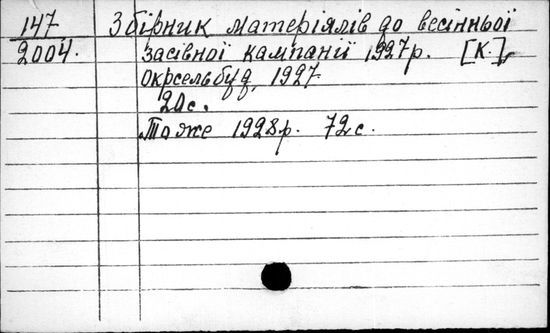 147 Збірник матеріялів до весінньої
2004. засівної кампанії 1927р. [К.],
окрсельбуд, 1927.
20с.
Тоже 1928р. 72с.